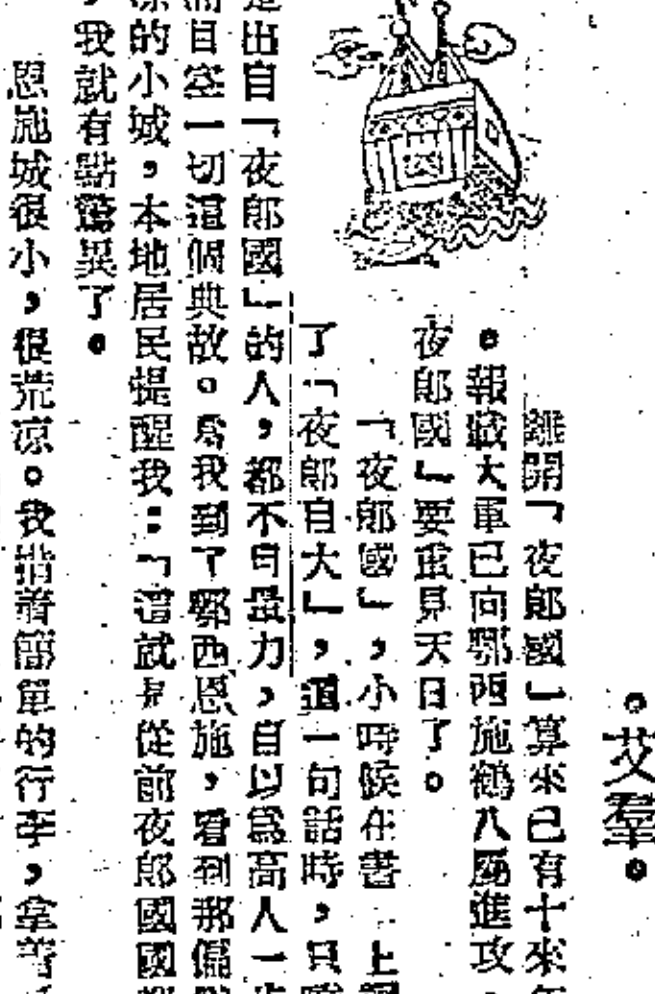 。艾羣。
離開「夜郎國」算來已有十來年
。報載大軍已向鄂西施鶴八屬進攻，
夜郎國」要重見天日了。
「夜郎國」，小時候在書 上讀
了「夜郎自大」，這一句話時，只
是出自「夜郎國」的人，都不自量力，自以爲高人一步
而目空一切這個典故。爲我到了鄂西恩施，看到那偏
涼的小城，本地居民提醒我：「這就是從前夜郎國國都
，我就有點驚異了。
恩施城很小，很荒涼。我揹着簡單的行李，拿着